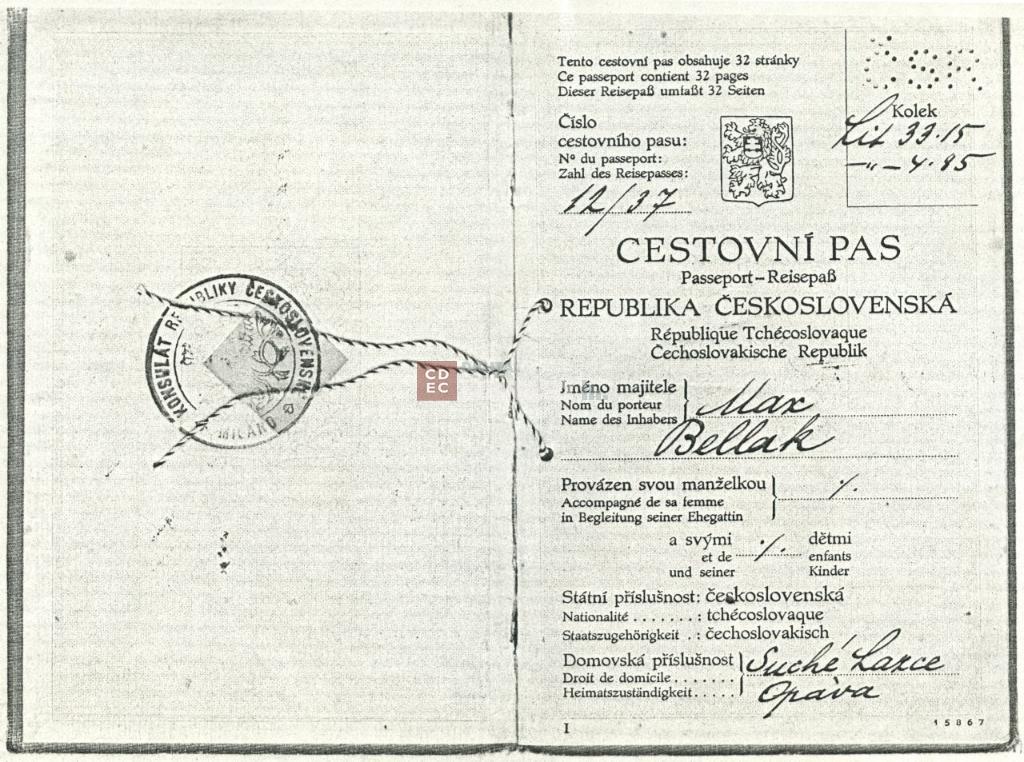 KONSULÁT REPUBLIKY ČESKOSLOVENSKÉ
MILANO
CD
EC
Tento cestovní pas obsahuje 32 stránky
Ce passeport contient 32 pages
Dieser Reisepaß umfaßt 32 Seiten
ČSR
Kolek
Lit 33.15
—"— 4.85
Číslo
cestovního pasu:
Nº du passeport:
Zahl des Reisepasses:
12/37
CESTOVNÍ PAS
Passeport – Reisepaß
REPUBLIKA ČESKOSLOVENSKÁ
République Tchécoslovaque
Čechoslovakische Republik
Jméno majitele
Nom du porteur
Name des Inhabers
Max
Bellak
Provázen svou manželkou
Accompagné de sa femme
in Begleitung seiner Ehegattin
./.
a svými ./. dětmi
et de enfants
und seiner Kinder
Státní příslušnost: československá
Nationalité . . . . . . . : tchécoslovaque
Staatszugehörigkeit . : čechoslovakisch
Domovská příslušnost
Droit de domicile . . . . . . .
Heimatszuständigkeit . . . . .
Suché Lazce
Opava
I
15867